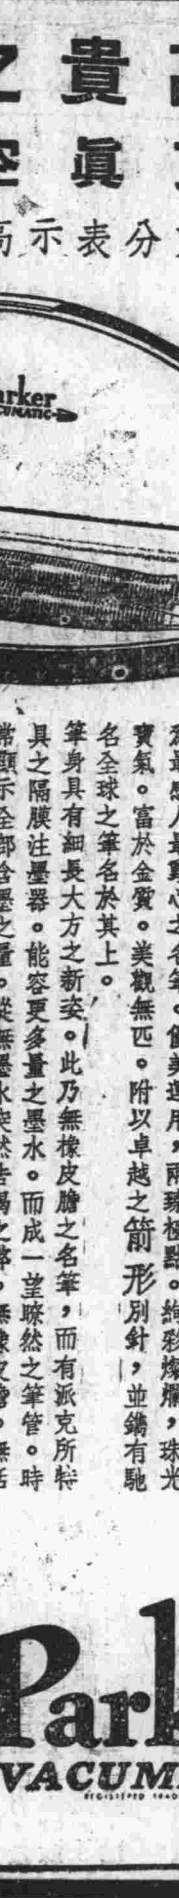 貴
眞
分表示高
arker
UMATIC
爲最感人最動心之名筆。備美運用，兩臻極點。絢彩燦爛，珠光
寶氣。富於金質。美觀無匹。附以卓越之箭形別針，並鐫有馳
名全球之筆名於其上。
筆身具有細長大方之新姿。此乃無橡皮膽之名筆，而有派克所特
具之隔膜注墨器。能容更多量之墨水。而成一望瞭然之筆管。時
常顯示全部含墨之量。從無墨水突然告竭之弊。無橡皮膽。無活
Park
VACUM
REGISTERED TRAD